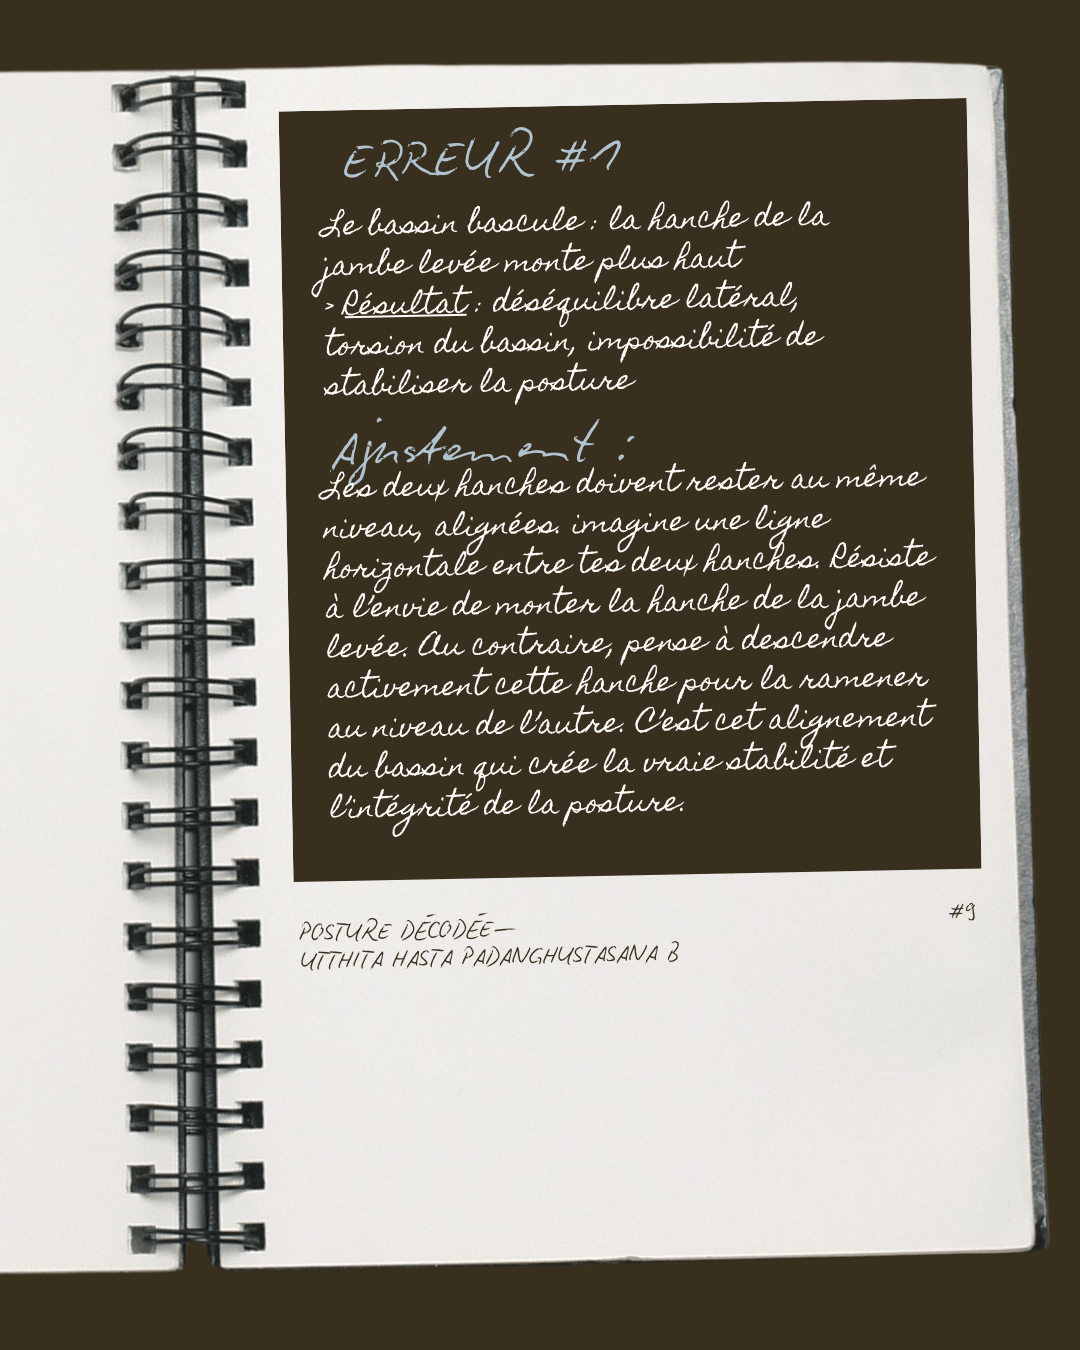 ERREUR #1
Le bassin bascule : la hanche de la
jambe levée monte plus haut
> Résultat : déséquilibre latéral,
torsion du bassin, impossibilité de
stabiliser la posture
Ajustement :
Les deux hanches doivent rester au même
niveau, alignées. imagine une ligne
horizontale entre tes deux hanches. Résiste
à l'envie de monter la hanche de la jambe
levée. Au contraire, pense à descendre
activement cette hanche pour la ramener
au niveau de l'autre. C'est cet alignement
du bassin qui crée la vraie stabilité et
l'intégrité de la posture.
#9
POSTURE DÉCODÉE—
UTTHITA HASTA PADANGHUSTASANA B